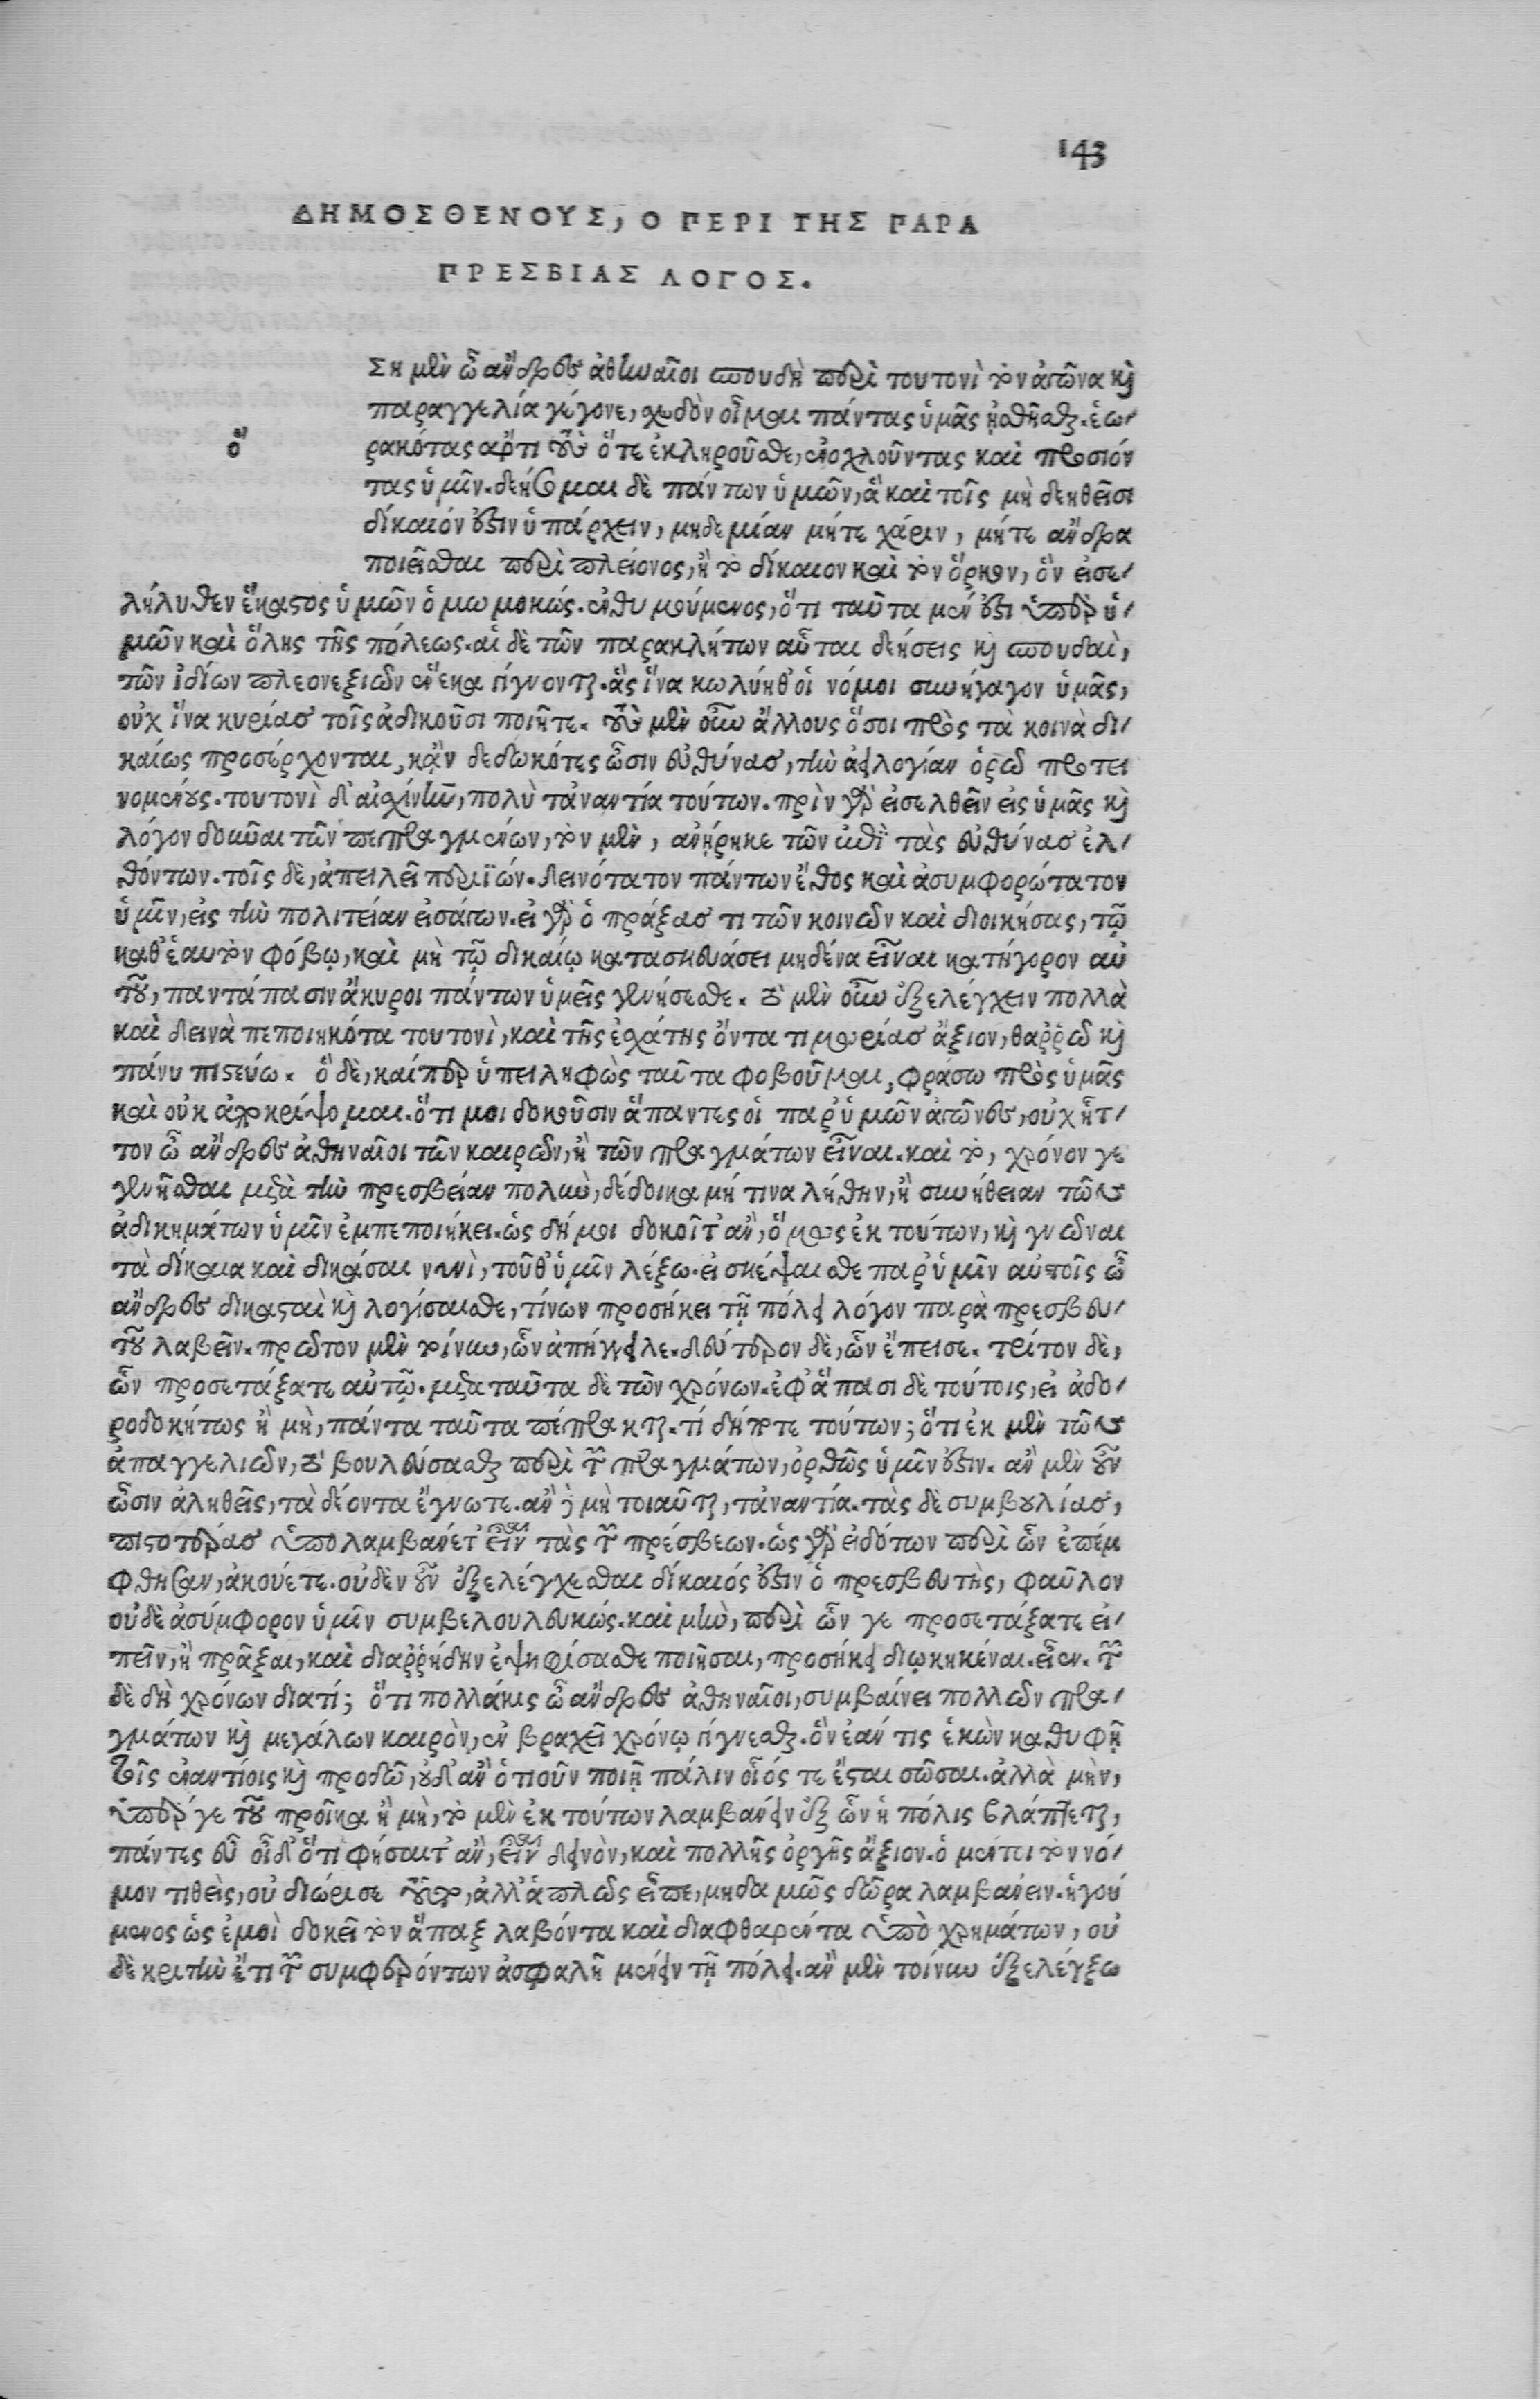 143
ΔΗΜΟΣΘΕΝΟΥΣ, Ο ΠΕΡΙ ΤΗΣ ΠΑΡΑ
ΠΡΕΣΒΙΑΣ ΛΟΓΟΣ.
ὅ
Ση μὲν ὦ ἄνδρες ἀθηναῖοι σπουδὴ περὶ τουτονὶ τὸν ἀγῶνα καὶ
παραγγελία γέγονε, σχεδὸν οἶμαι πάντας ὑμᾶς ᾐσθῆσθαι. ἑω-
ρακότας ἄρτι τοὺς ὅτε ἐκληροῦσθε, ἐνοχλοῦντας καὶ προσιόν
τας ὑμῖν. δεήσομαι δὲ πάντων ὑμῶν, ἃ καὶ τοῖς μὴ δεηθεῖσι
δίκαιόν ἐστιν ὑπάρχειν, μηδεμίαν μήτε χάριν, μήτε ἄνδρα
ποιεῖσθαι περὶ πλείονος, ἢ τὸ δίκαιον καὶ τὸν ὅρκον, ὃν εἰσε-
λήλυθεν ἕκαστος ὑμῶν ὀμωμοκώς. ἐνθυμούμενος, ὅτι ταῦτα μέν ἐστι ὑπὲρ ὑ-
μῶν καὶ ὅλης τῆς πόλεως. αἱ δὲ τῶν παρακλήτων αὗται δεήσεις καὶ σπουδαὶ,
τῶν ἰδίων πλεονεξιῶν ἕνεκα γίγνονται. ἃς ἵνα κωλύηθ' οἱ νόμοι συνήγαγον ὑμᾶς,
οὐχ ἵνα κυρίας τοῖς ἀδικοῦσι ποιῆτε. τοὺς μὲν οὖν ἄλλους ὅσοι πρὸς τὰ κοινὰ δι-
καίως προσέρχονται, κἂν δεδωκότες ὦσιν εὐθύνας, τὴν ἀειλογίαν ὁρῶ προτει
νομένους. τουτονὶ δ' αἰσχίνην, πολὺ τἀναντία τούτων. πρὶν γὰρ εἰσελθεῖν εἰς ὑμᾶς καὶ
λόγον δοῦναι τῶν πεπραγμένων, τὸν μὲν, ἀνῄρηκε τῶν ἐπὶ τὰς εὐθύνας ἐλ-
θόντων. τοῖς δὲ, ἀπειλεῖ περιϊών. δεινότατον πάντων ἔθος καὶ ἀσυμφορώτατον
ὑμῖν, εἰς τὴν πολιτείαν εἰσάγων. εἰ γὰρ ὁ πράξας τι τῶν κοινῶν καὶ διοικήσας, τῷ
καθ' ἑαυτὸν φόβῳ, καὶ μὴ τῷ δικαίῳ κατασκευάσει μηδένα εἶναι κατήγορον αὐ
τοῦ, παντάπασιν ἄκυροι πάντων ὑμεῖς γενήσεσθε. τὸ μὲν οὖν ἐξελέγχειν πολλὰ
καὶ δεινὰ πεποιηκότα τουτονὶ, καὶ τῆς ἐσχάτης ὄντα τιμωρίας ἄξιον, θαῤῥῶ καὶ
πάνυ πιστεύω. ὃ δὲ, καίπερ ὑπειληφὼς ταῦτα φοβοῦμαι, φράσω πρὸς ὑμᾶς
καὶ οὐκ ἀποκρύψομαι. ὅτι μοι δοκοῦσιν ἅπαντες οἱ παρ' ὑμῶν ἀγῶνες, οὐχ ἧτ-
τον ὦ ἄνδρες ἀθηναῖοι τῶν καιρῶν, ἢ τῶν πραγμάτων εἶναι. καὶ τὸ, χρόνον γε
γενῆσθαι μετὰ τὴν πρεσβείαν πολὺν, δέδοικα μή τινα λήθην, ἢ συνήθειαν τῶν
ἀδικημάτων ὑμῖν ἐμπεποιήκει. ὡς δή μοι δοκοῖτ' ἂν, ὅμως ἐκ τούτων, καὶ γνῶναι
τὰ δίκαια καὶ δικάσαι νυνὶ, τοῦθ' ὑμῖν λέξω. εἰ σκέψαισθε παρ' ὑμῖν αὐτοῖς ὦ
ἄνδρες δικασταὶ καὶ λογίσαισθε, τίνων προσήκει τῇ πόλει λόγον παρὰ πρεσβευ-
τοῦ λαβεῖν. πρῶτον μὲν τοίνυν, ὧν ἀπήγγειλε. δεύτερον δὲ, ὧν ἔπεισε. τρίτον δὲ,
ὧν προσετάξατε αὐτῷ. μετὰ ταῦτα δὲ τῶν χρόνων. ἐφ' ἅπασι δὲ τούτοις, εἰ ἀδω-
ροδοκήτως ἢ μὴ, πάντα ταῦτα πέπρακται. τί δήποτε τούτων; ὅτι ἐκ μὲν τῶν
ἀπαγγελιῶν, τὸ βουλεύσασθαι περὶ τῶν πραγμάτων, ὀρθῶς ὑμῖν ἐστιν. ἂν μὲν οὖν
ὦσιν ἀληθεῖς, τὰ δέοντα ἔγνωτε. ἂν δὲ μὴ τοιαῦται, τἀναντία. τὰς δὲ συμβουλίας,
πιστοτέρας ὑπολαμβάνετ' εἶναι τὰς τῶν πρέσβεων. ὡς γὰρ εἰδότων περὶ ὧν ἐπέμ
φθησαν, ἀκούετε. οὐδὲν οὖν ἐξελέγχεσθαι δίκαιός ἐστιν ὁ πρεσβευτὴς, φαῦλον
οὐδὲ ἀσύμφορον ὑμῖν συμβεβουλευκώς. καὶ μὴν, περὶ ὧν γε προσετάξατε εἰ-
πεῖν, ἢ πρᾶξαι, καὶ διαῤῥήδην ἐψηφίσασθε ποιῆσαι, προσήκει διῳκηκέναι. εἶεν. τῶν
δὲ δὴ χρόνων διατί; ὅτι πολλάκις ὦ ἄνδρες ἀθηναῖοι, συμβαίνει πολλῶν πρα-
γμάτων καὶ μεγάλων καιρὸν, ἐν βραχεῖ χρόνῳ γίγνεσθαι. ὃν ἐάν τις ἑκὼν καθυφῇ
τοῖς ἐναντίοις καὶ προδῶ, οὐδ' ἂν ὁτιοῦν ποιῇ πάλιν οἷός τε ἔσται σῶσαι. ἀλλὰ μὴν,
ὑπὲρ γε τοῦ προῖκα ἢ μὴ, τὸ μὲν ἐκ τούτων λαμβάνειν ἐξ ὧν ἡ πόλις βλάπτεται,
πάντες εὖ οἶδ' ὅτι φήσαιτ' ἂν, εἶναι δεινὸν, καὶ πολλῆς ὀργῆς ἄξιον. ὁ μέντοι τὸν νό-
μον τιθεὶς, οὐ διώρισε τοῦτο, ἀλλ' ἁπλῶς εἶπε, μηδαμῶς δῶρα λαμβάνειν. ἡγού
μενος ὡς ἐμοὶ δοκεῖ τὸν ἅπαξ λαβόντα καὶ διαφθαρέντα ὑπὸ χρημάτων, οὐ
δὲ κριτὴν ἔτι τῶν συμφερόντων ἀσφαλῆ μένειν τῇ πόλει. ἂν μὲν τοίνυν ἐξελέγξω